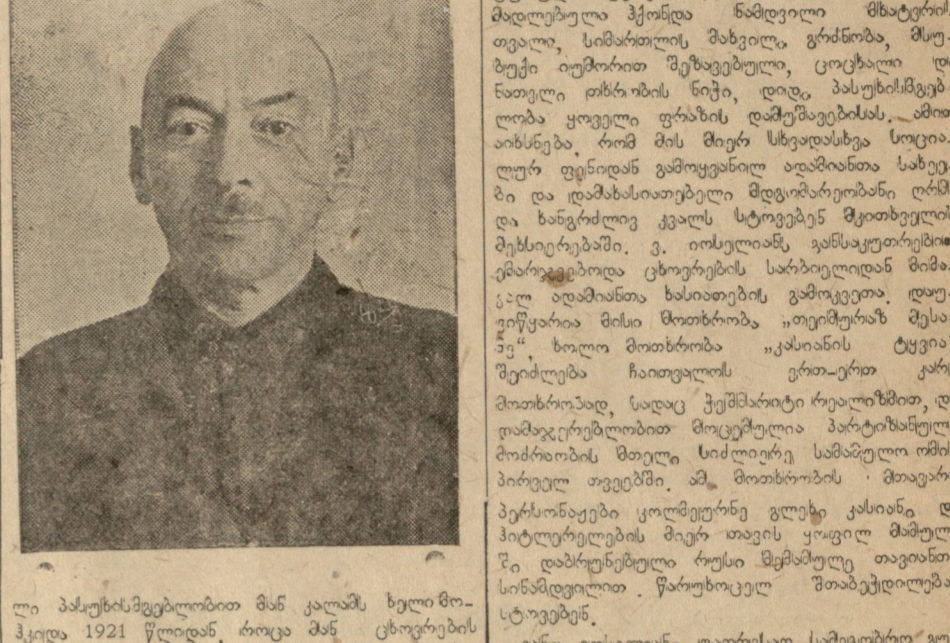 ლი პასუხისმგებლობით მან კალამს ხელი მო-
ჰკიდა 1921 წლიდან, როცა მან ცხოვრების
მადლებულა ჰქონდა ნამდვილი მხატვრის
თვალი, სიმართლის მახვილი გრძნობა, მსუ-
ბუქი იუმორით შეზავებული, ცოცხალი და
ნათელი თხრობის ნიჭი, დიდი პასუხისმგებ-
ლობა ყოველი ფრაზის დამუშავებისას. ამით
აიხსნება, რომ მის მიერ სხვადასხვა სოცია-
ლურ ფენიდან გამოყვანილ ადამიანთა სახეე-
ბი და დამახასიათებელი მდგომარეობანი ღრმ
და ხანგრძლივ კვალს სტოვებენ მკითხველის
მეხსიერებაში. ვ. იოსელიანს განსაკუთრებით
ემარჯვებოდა ცხოვრების სარბიელიდან მიმა-
ვალ ადამიანთა ხასიათების გამოკვეთა. დაუ-
ვიწყარია მისი მოთხრობა „თეიმურაზ მესა-
მე“, ხოლო მოთხრობა „კასიანის ტყვია
შეიძლება ჩაითვალოს ერთ-ერთ კარგ
მოთხრობად, სადაც ჭეშმარიტი რეალიზმით, დ
დამაჯერებლობით მოცემულია პარტიზანულ
მოძრაობის მთელი სიძლიერე სამამულო ომის
პირველ თვეებში. ამ მოთხრობის მთავარ
პერსონაჟები კოლმეურნე გლეხი კასიანი დ
ჰიტლერელების მიერ თავის ყოფილ მამულ
ში დაბრუნებული რუსი მემამულე თავიანთ
სინამდვილით წარუხოცელ შთაბეჭდილება
სტოვებენ.